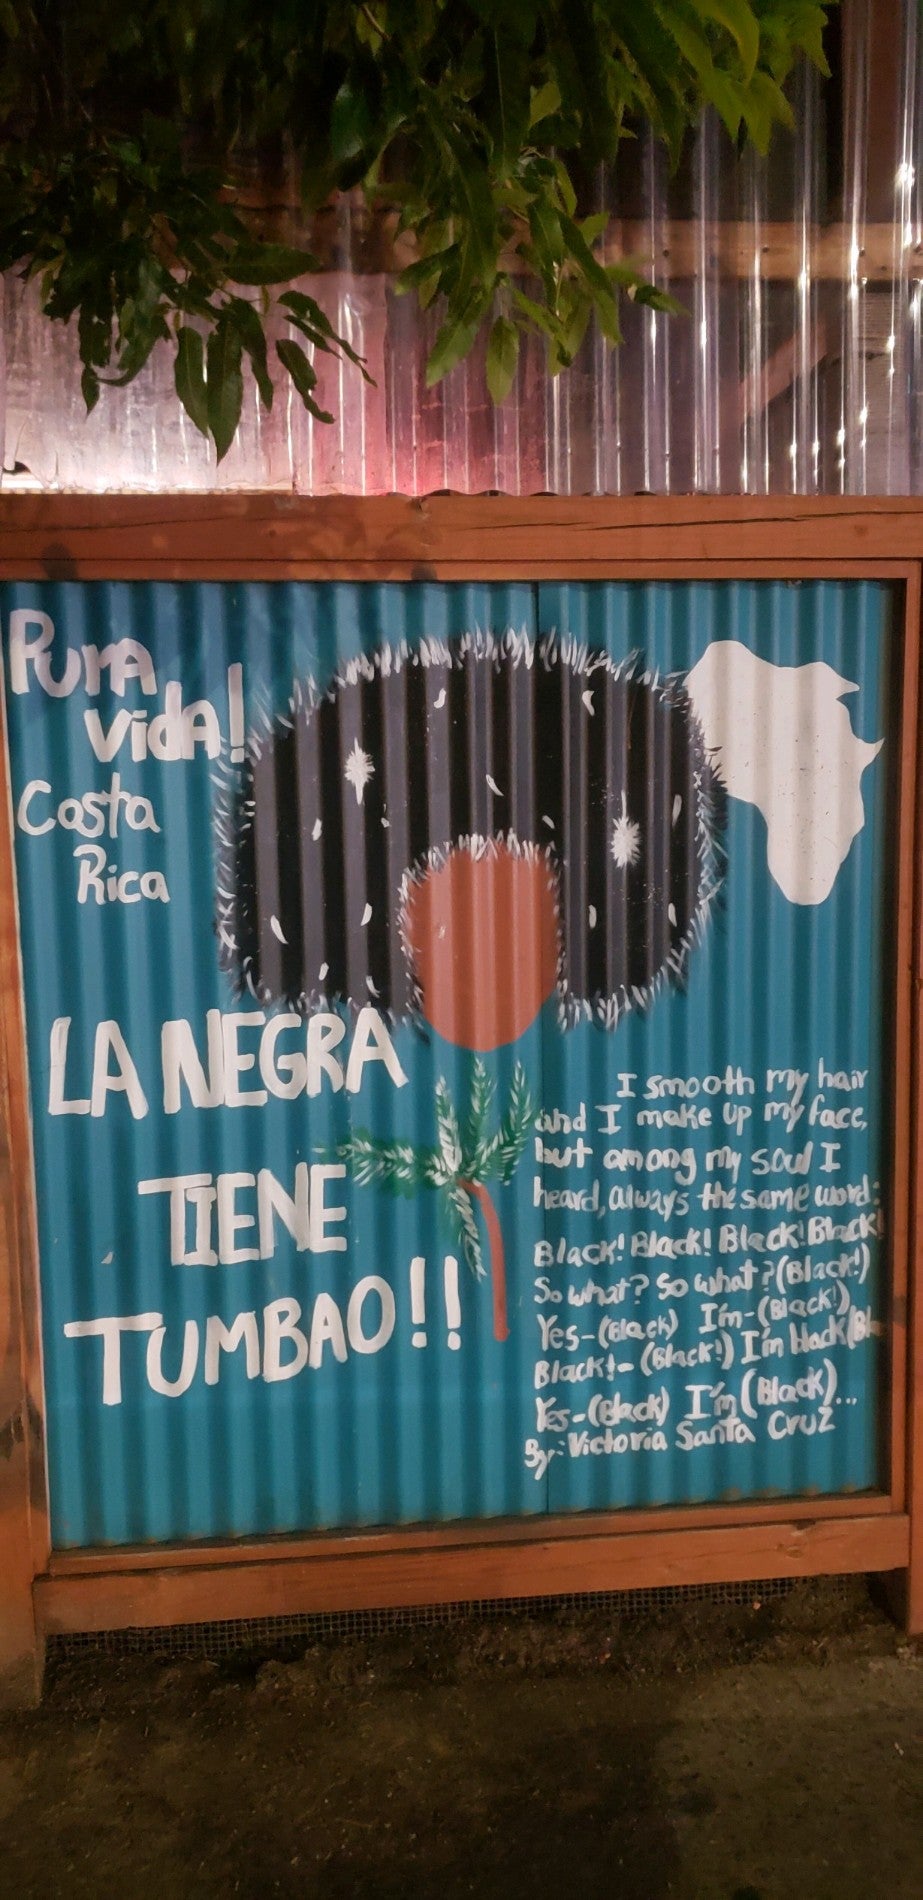 Pura
vida!
Costa
Rica
LA NEGRA
TIENE
TUMBAO!!
I smooth my hair
and I make up my face,
but among my soul I
heard, always the same word:
Black! Black! Black! Black!
So what? So what? (Black!)
Yes-(Black) I'm-(Black!)
Black!-(Black!) I'm
Yes-(Black) I'm (Black)...
By: Victoria Santa Cruz